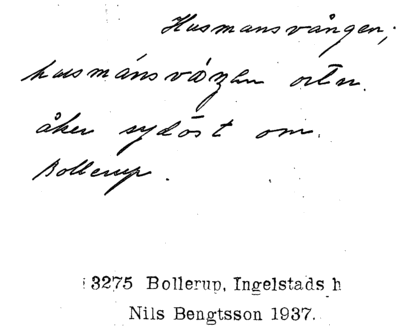 Husmansvången;
husmánsváŋen ortn.
åker sydöst om.
Bollerup.
3275 Bollerup, Ingelstads h
Nils Bengtsson 1937.